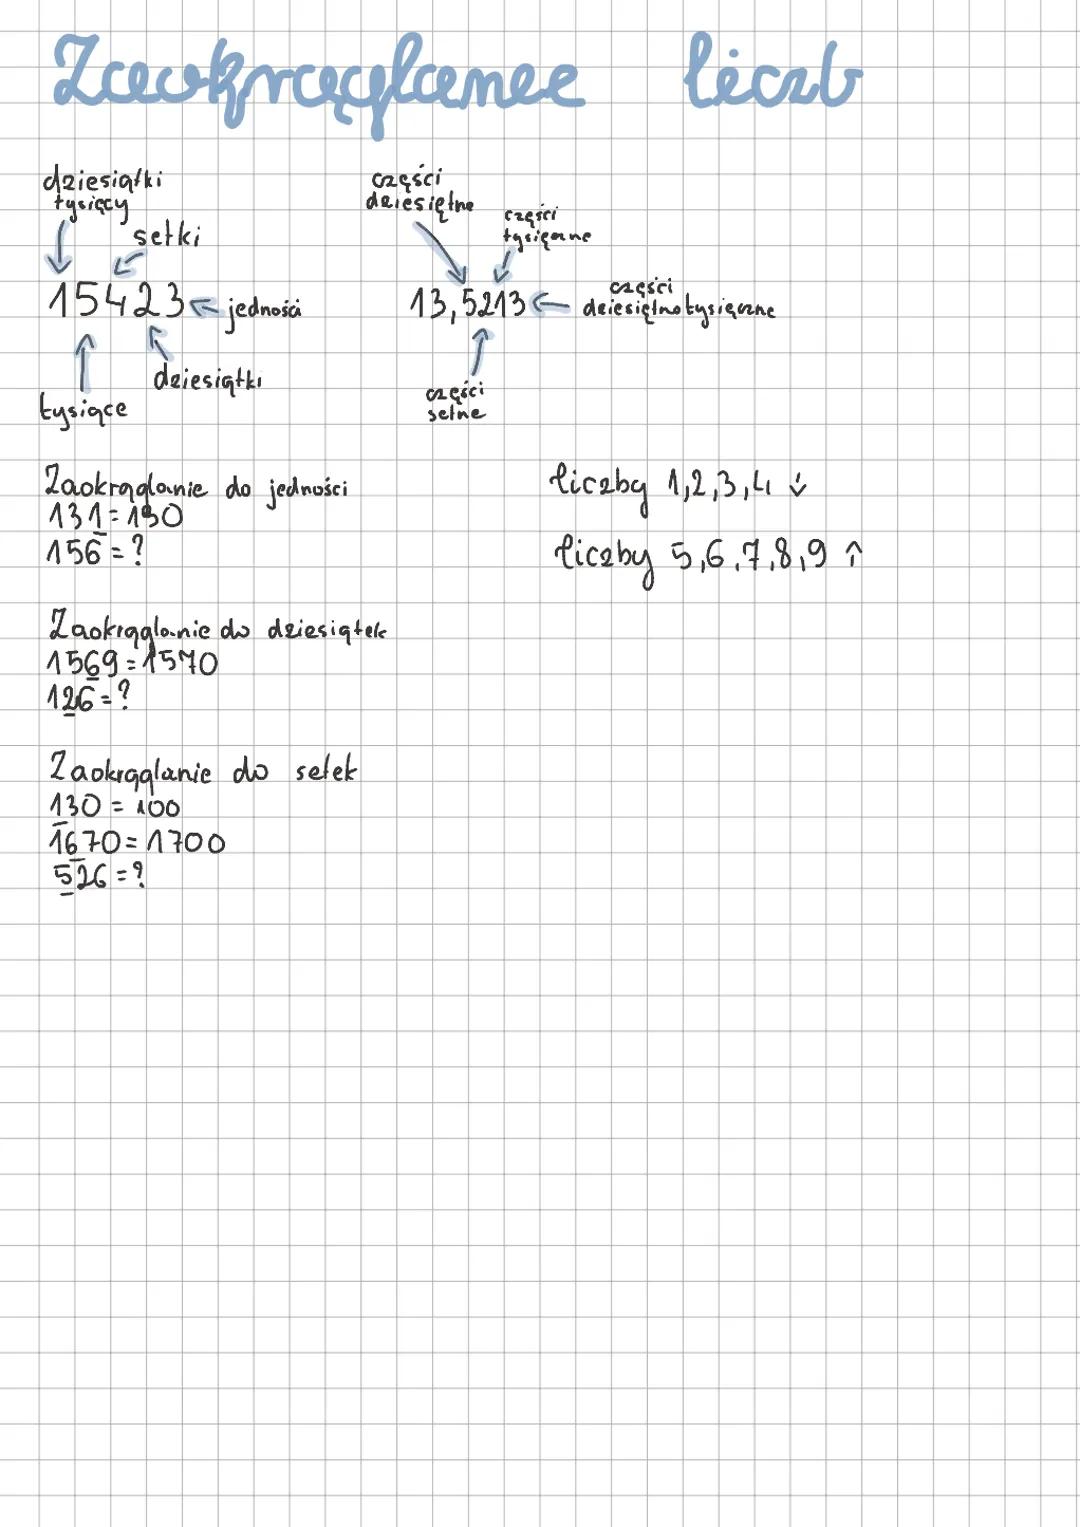 Zaokrąglanie liczb
dziesiątki
tysięcy
setki
15423
jedności
dziesiątki
tysiące
części
dziesiętne
części
tysięczne
13,5213
części
dziesiętnotysięczne
części
setne
Zaokrąglanie do jedności
131=130
156=?
liczby 1,2,3,4 ↓
liczby 5,6,7,8,9 ↑
Zaokrąglanie do dziesiątek
1569=1570
126=?
Zaokrąglanie do setek
130=100
1670=1700
526=?